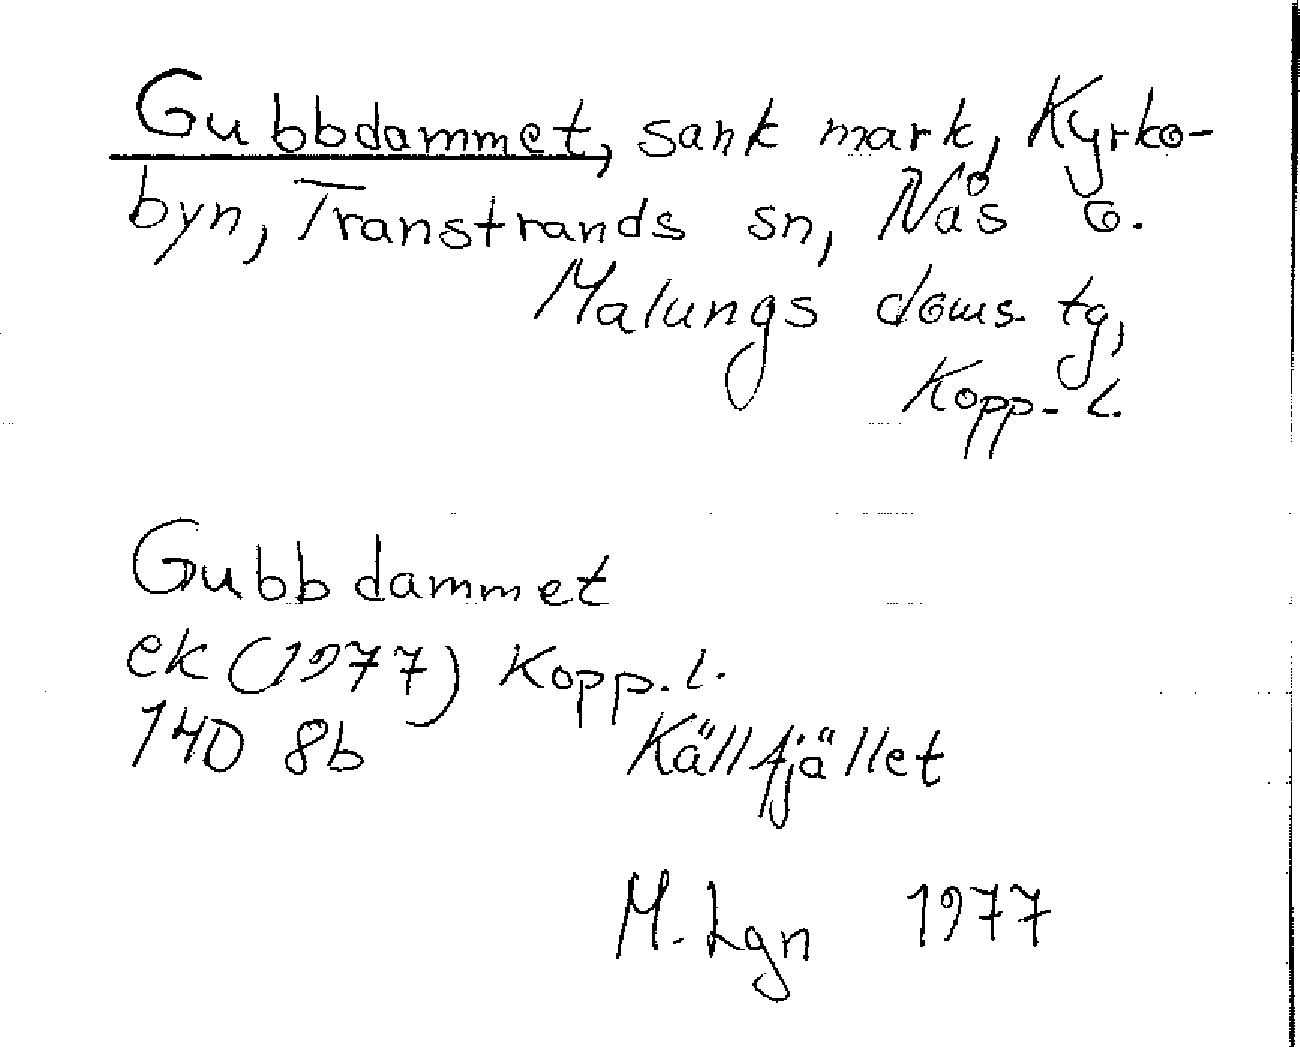 Gubbdammet, sank mark, Kyrko-
byn, Transtrands sn, Nås o.
Malungs doms. tg,
Kopp. l.
Gubbdammet
ek (1977) Kopp. l.
14D 8b Källfjället
M. Lgn 1977